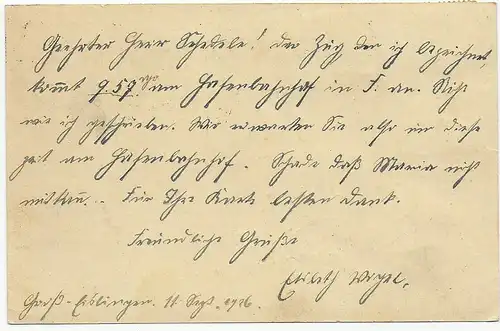 Geehrter Herr Schedele! Der Zug den ich bezeichnet,
kommt 9.57 am Hafenbahnhof in F. an. Nicht
wie ich geschrieben. Wir erwarten Sie also um diese
Zeit am Hafenbahnhof. Schade daß Maria nicht
mitkann. - Für Ihre Karte besten Dank.
Freundliche Grüße
Elisabeth
Groß-Eislingen. 11. Sept. 1926.